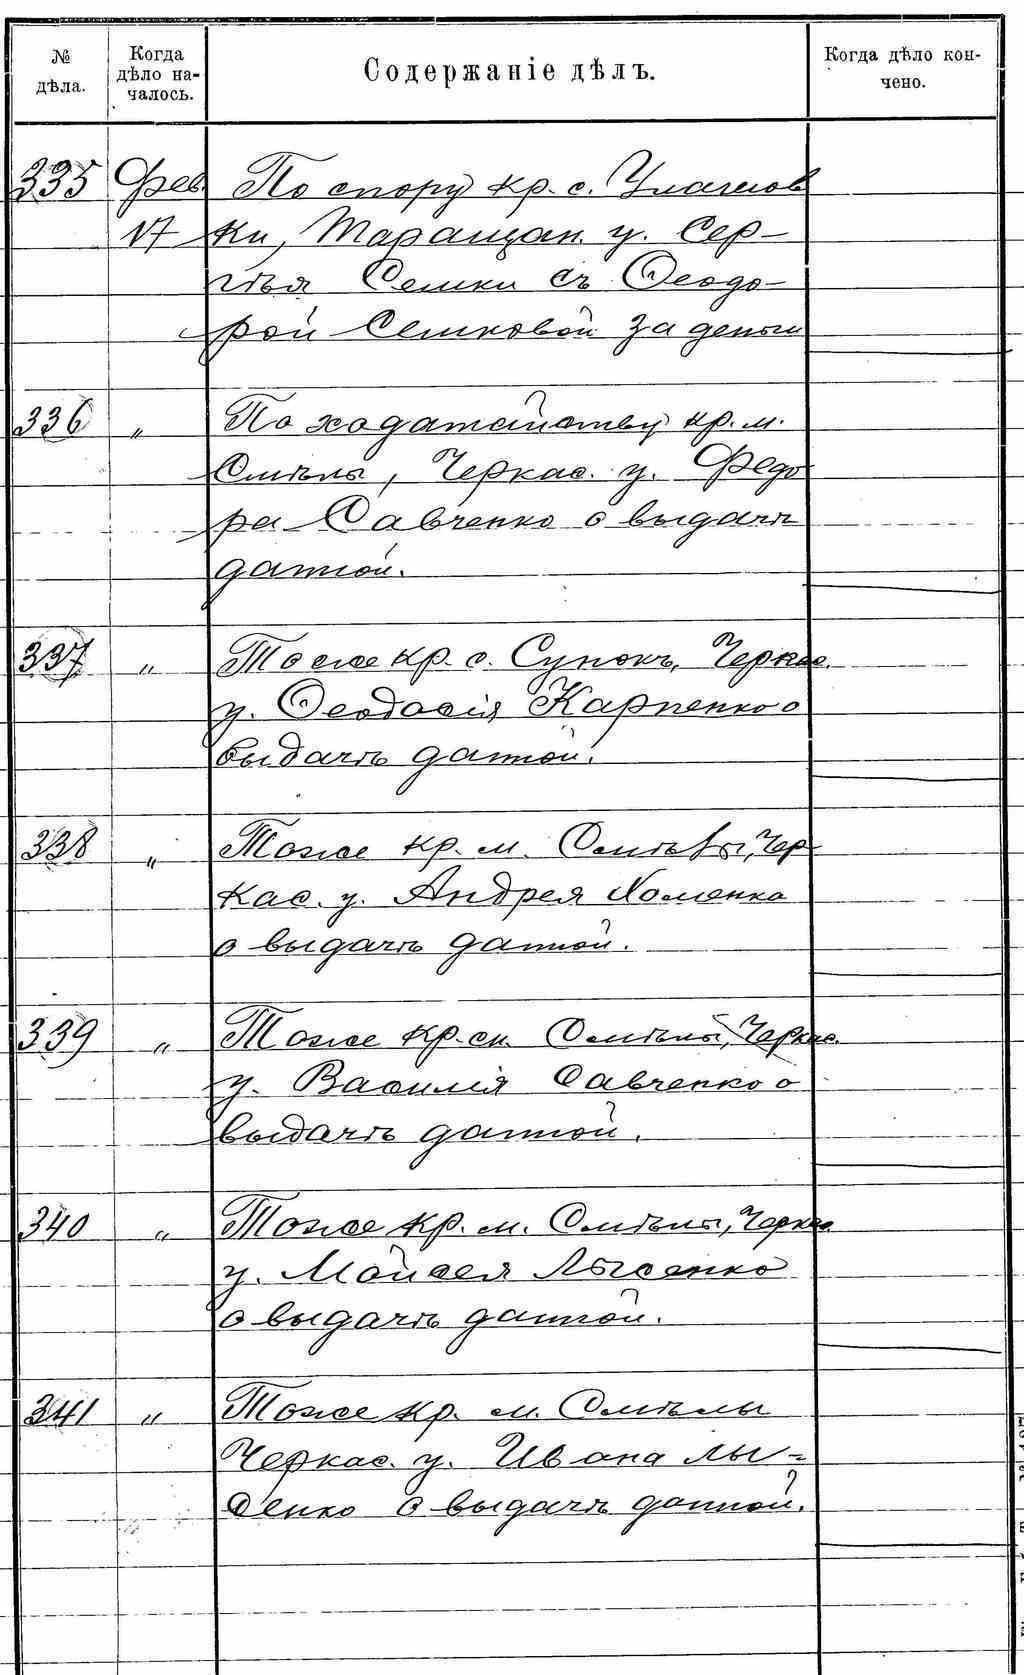 № дѣла.
Когда дѣло на-
чалось.
Содержаніе дѣлъ.
Когда дѣло кон-
чено.
335 Фев. По спору кр. с.
17 ки, Таращан. у. Сер-
гѣя Семки съ Ѳеодо-
рой Семковой за деньги
336 „ По ходатайству кр. м.
Смѣлы, Черкас. у. Федо
ра Савченко о выдачѣ
данной.
337 „ Тоже кр. с. Сунокъ, Черкас.
у. Ѳеодосія Карпенко о
выдачѣ данной.
338 „ Тоже кр. м. Смѣлы, Чер-
кас. у. Андрея Хоменко
о выдачѣ данной.
339 „ Тоже кр. м. Смѣлы, Черкас.
у. Василія Савченко о
выдачѣ данной.
340 „ Тоже кр. м. Смѣлы, Черкас.
у. Мойсея Лысенко
о выдачѣ данной.
341 „ Тоже кр. м. Смѣлы
Черкас. у. Ивана Лы-
сенко о выдачѣ данной.